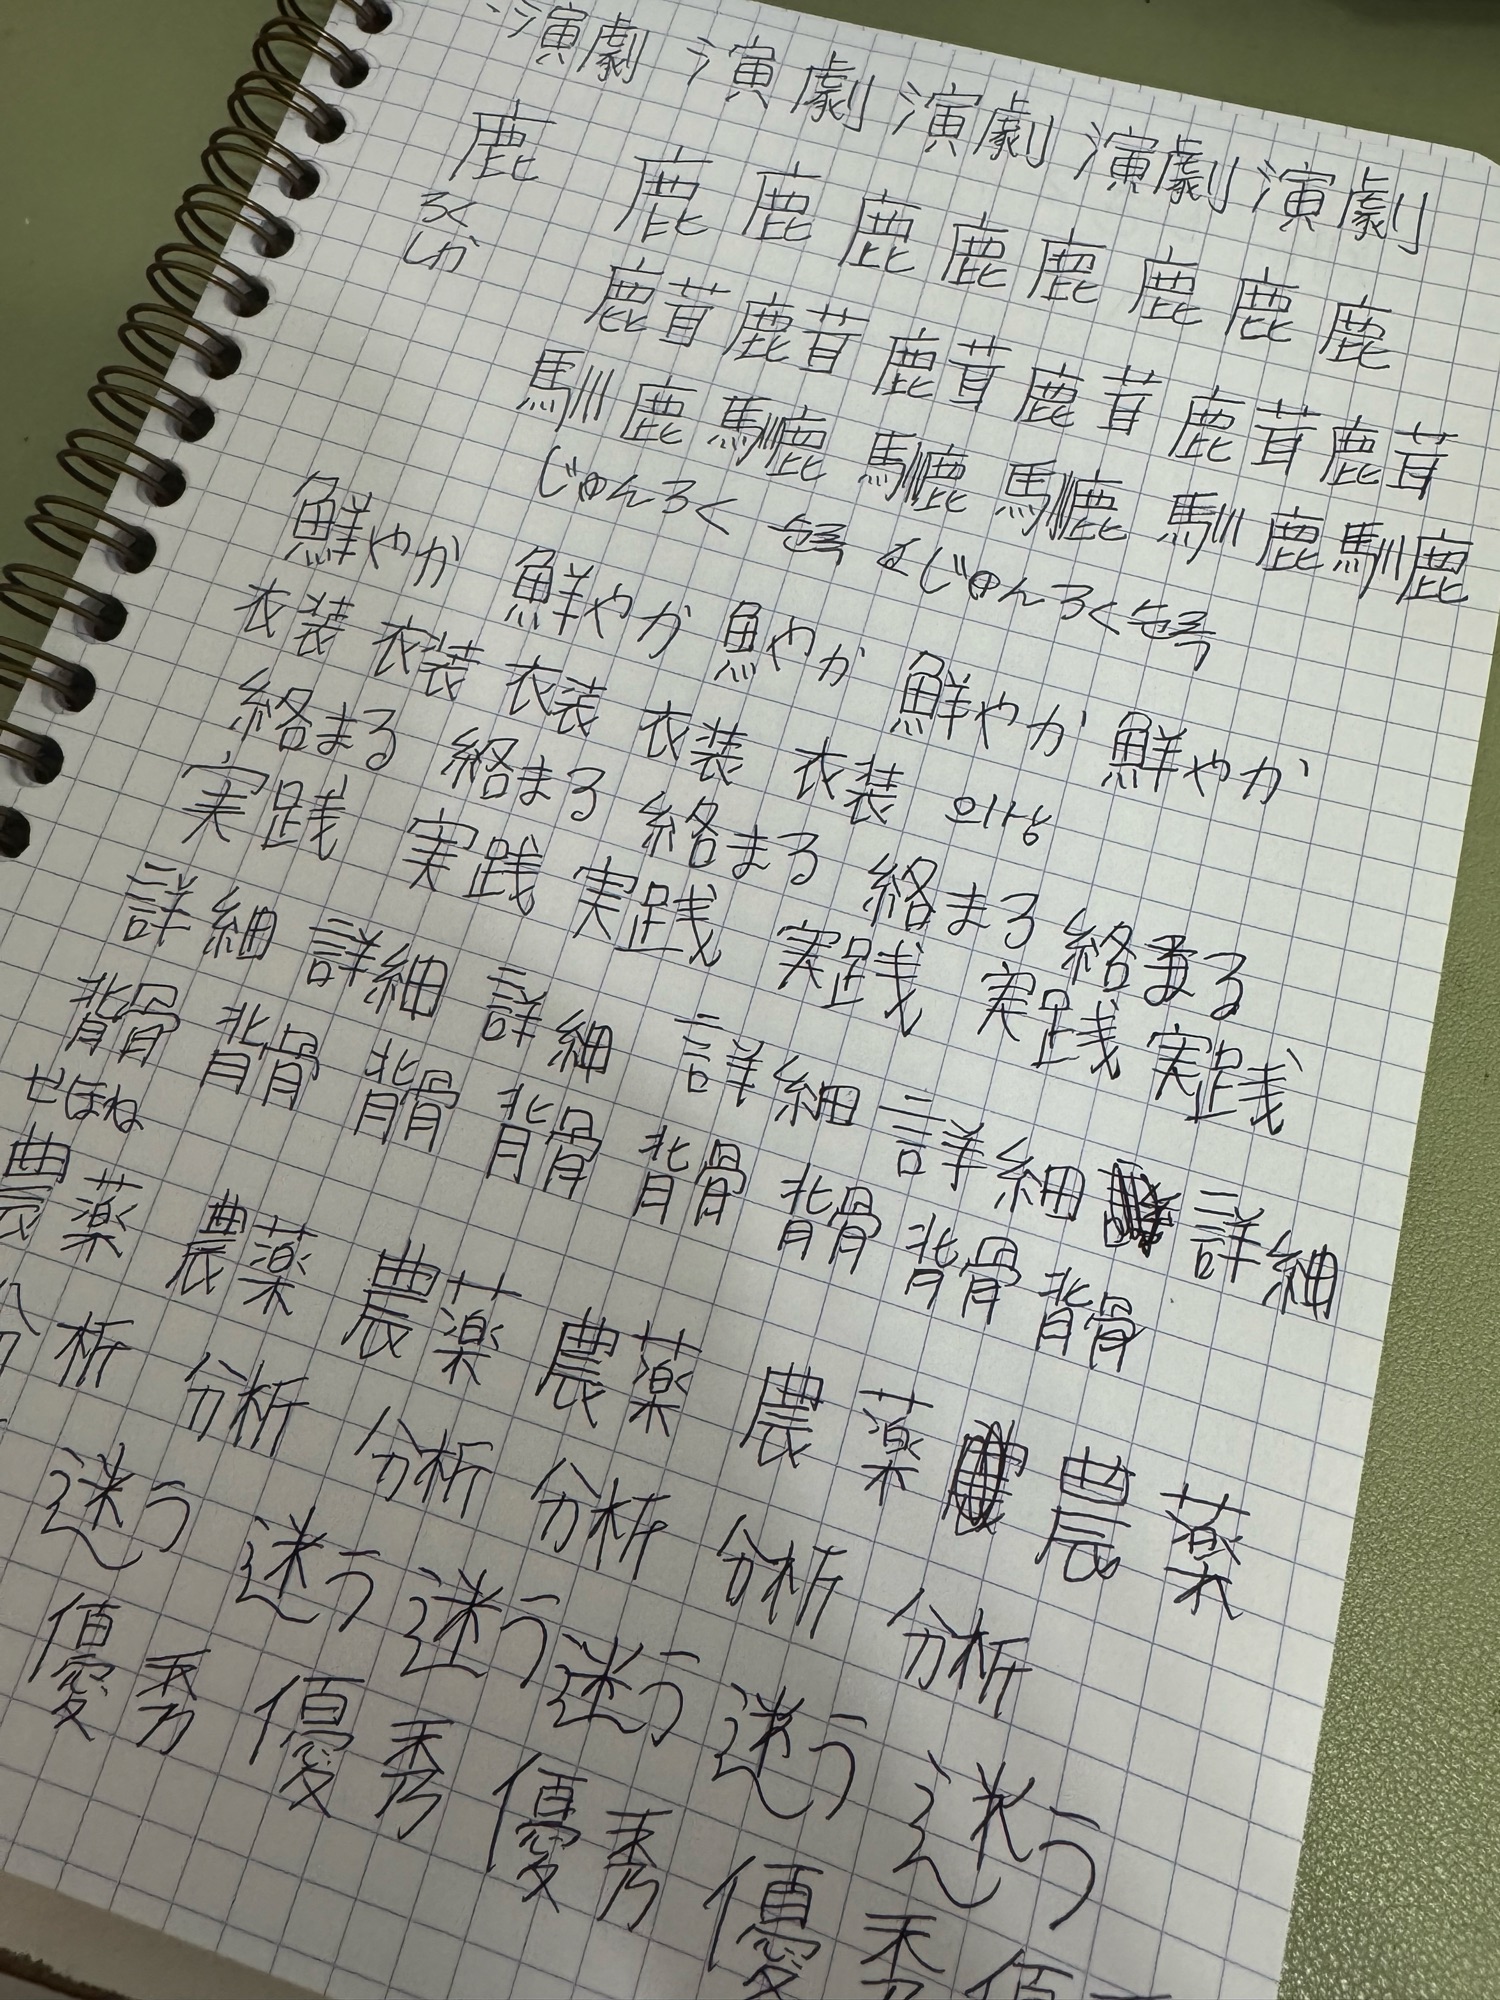 演劇 演劇 演劇 演劇 演劇
鹿 鹿 鹿 鹿 鹿 鹿 鹿 鹿 鹿
ろく
しか
鹿茸 鹿茸 鹿茸 鹿茸 鹿茸 鹿茸
馴鹿 馴鹿 馴鹿 馴鹿 馴鹿 馴鹿
じゅんろく じゅんろく
鮮やか 鮮やか 鮮やか 鮮やか 鮮やか
衣装 衣装 衣装 衣装 衣装 의상
絡まる 絡まる 絡まる 絡まる 絡まる
実践 実践 実践 実践 実践 実践
詳細 詳細 詳細 詳細 詳細 詳細
背骨 背骨 背骨 背骨 背骨 背骨 背骨 背骨
せぼね
農薬 農薬 農薬 農薬 農薬 農薬
分析 分析 分析 分析 分析 分析
迷う 迷う 迷う 迷う 迷う 迷う
優秀 優秀 優秀 優秀